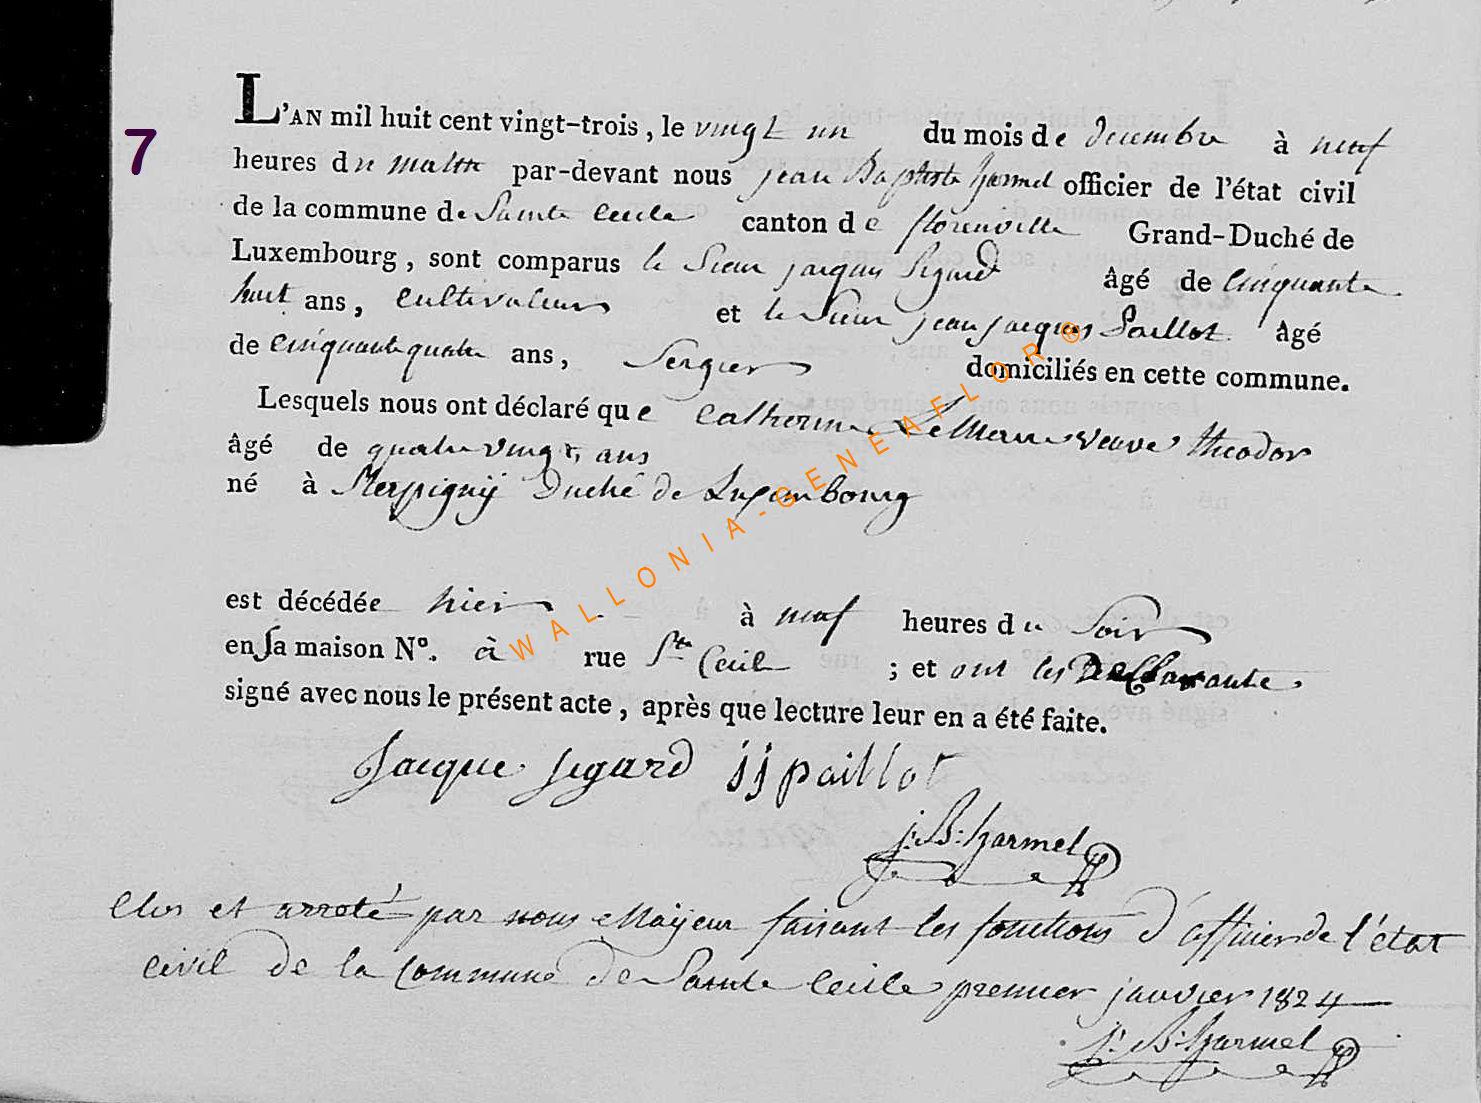 7
L'AN mil huit cent vingt-trois, le vingt un du mois de decembre à neuf
heures du matin par-devant nous jean Baptiste harmel officier de l'état civil
de la commune de Sainte Cecile canton de florenville Grand-Duché de
Luxembourg, sont comparus le Sieur jacques Sigard âgé de cinquante
huit ans, cultivateur et le Sieur jean jacques Paillot âgé
de cinquante quatre ans, Sergier domiciliés en cette commune.
Lesquels nous ont déclaré que Catherine veuve theodor
âgé de quatre vingt ans
né à Sterpignÿ Duché de Luxembourg
est décédée hier à neuf heures du Soir
en Sa maison N°. à rue Ste Cecile ; et ont les Declarants
signé avec nous le présent acte, après que lecture leur en a été faite.
Jacque Sigard jj paillot
j: B: harmel
Clos et arroté par nous Maÿeur faisant les fonctions d'officier de l'état
civil de la Commune de Sainte Cecile premier janvier 1824
j: B: harmel
WALLONIA-GENEAFLOR®